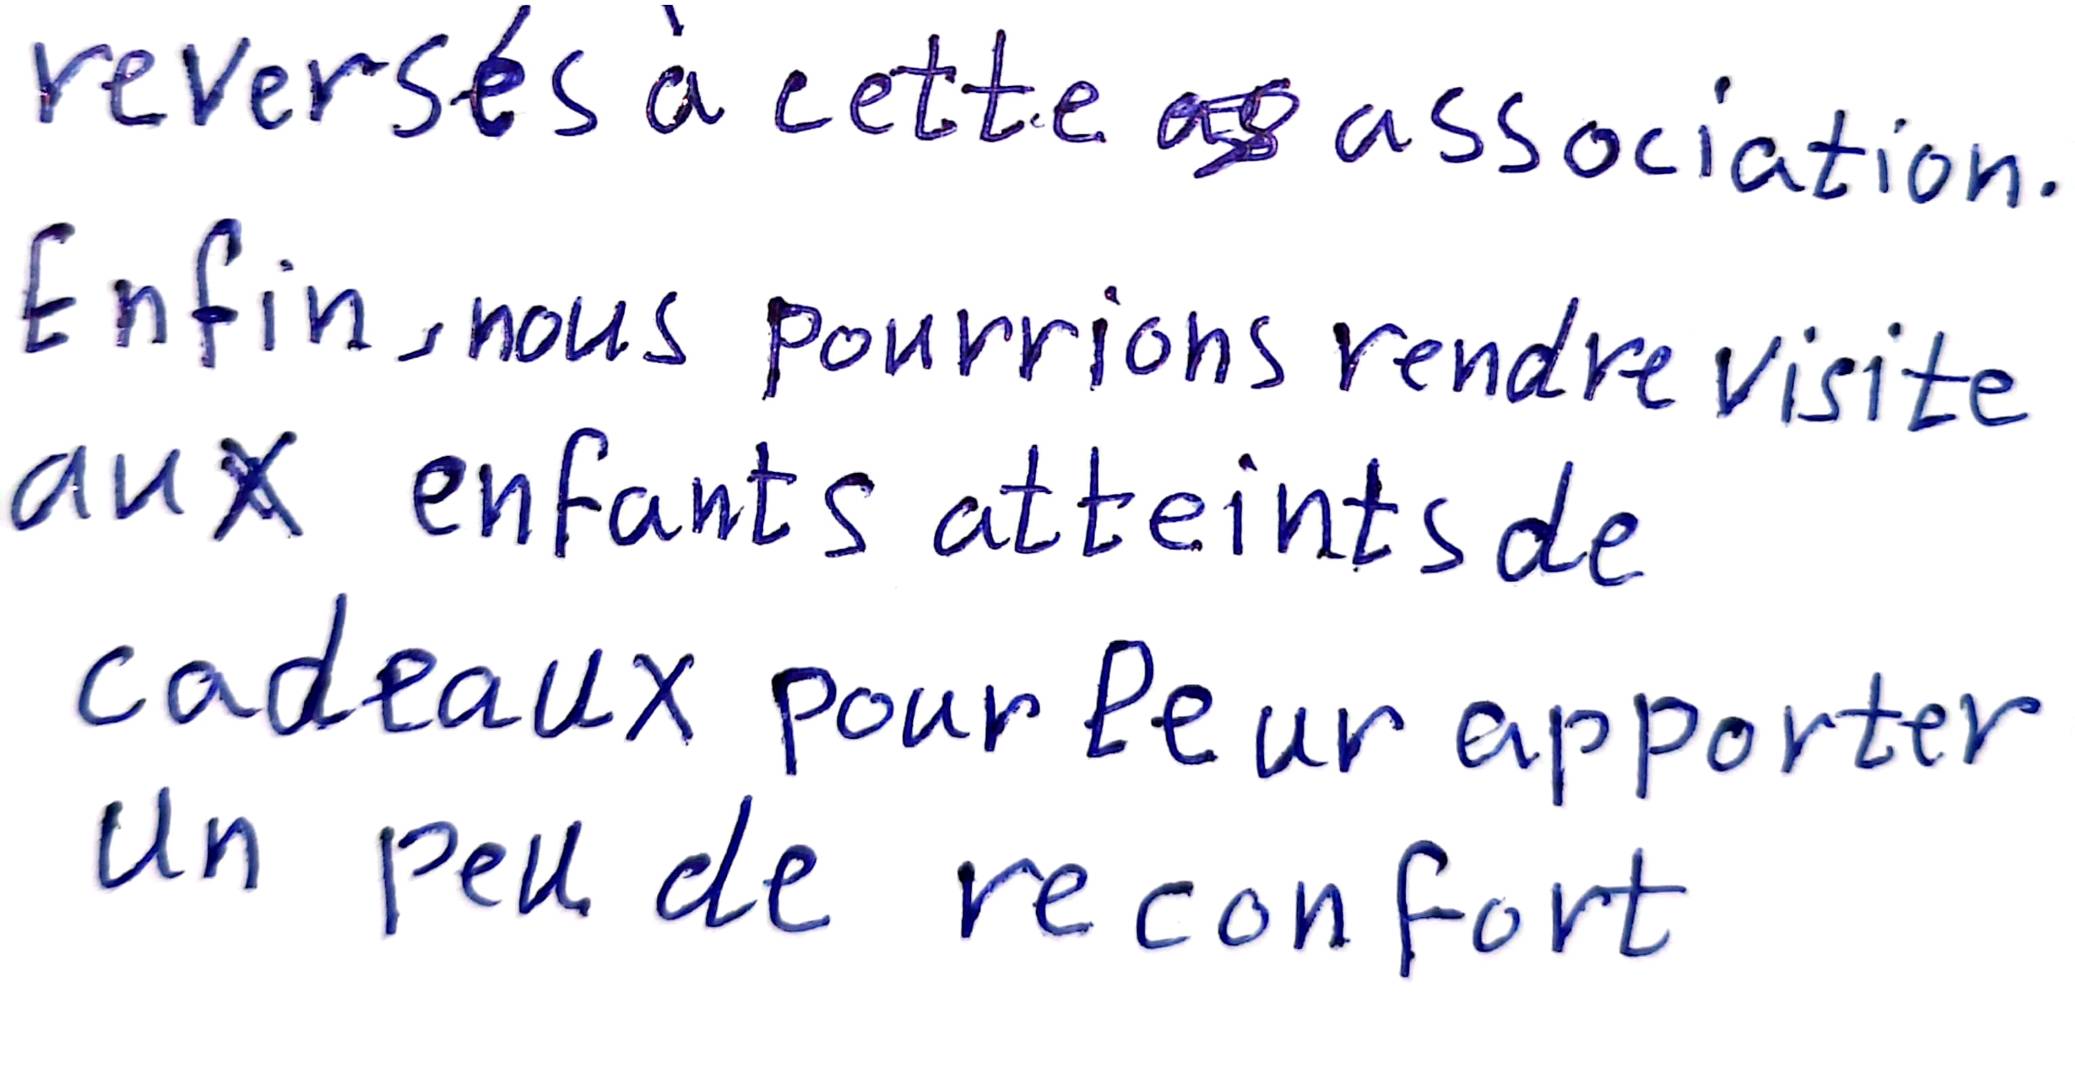 reversés à cette association.
Enfin, nous pourrions rendre visite
aux enfants atteints de
cadeaux pour leur apporter
un peu de reconfort